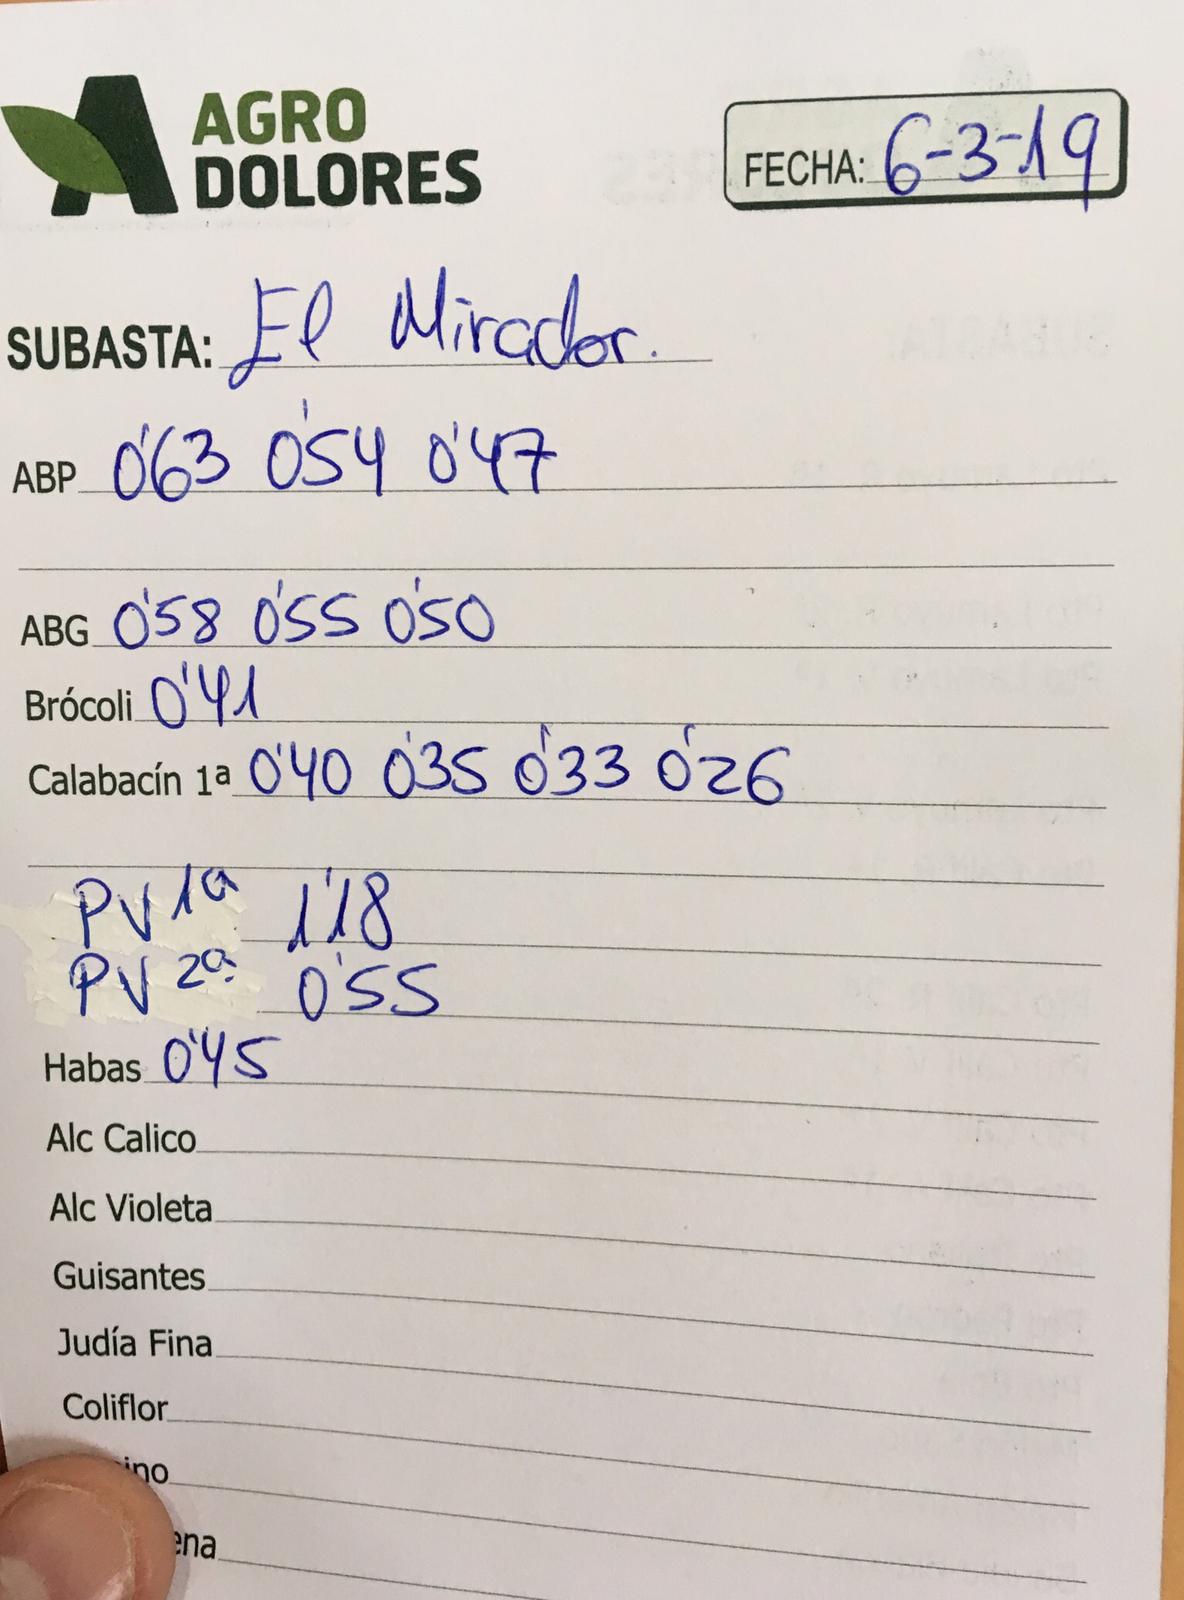 AGRO
DOLORES
FECHA: 6-3-19
SUBASTA: El Mirador.
ABP 0'63 0'54 0'47
ABG 0'58 0'55 0'50
Brócoli 0'41
Calabacín 1ª 0'40 0'35 0'33 0'26
PV 1ª 1'18
PV 2ª 0'55
Habas 0'45
Alc Calico
Alc Violeta
Guisantes
Judía Fina
Coliflor